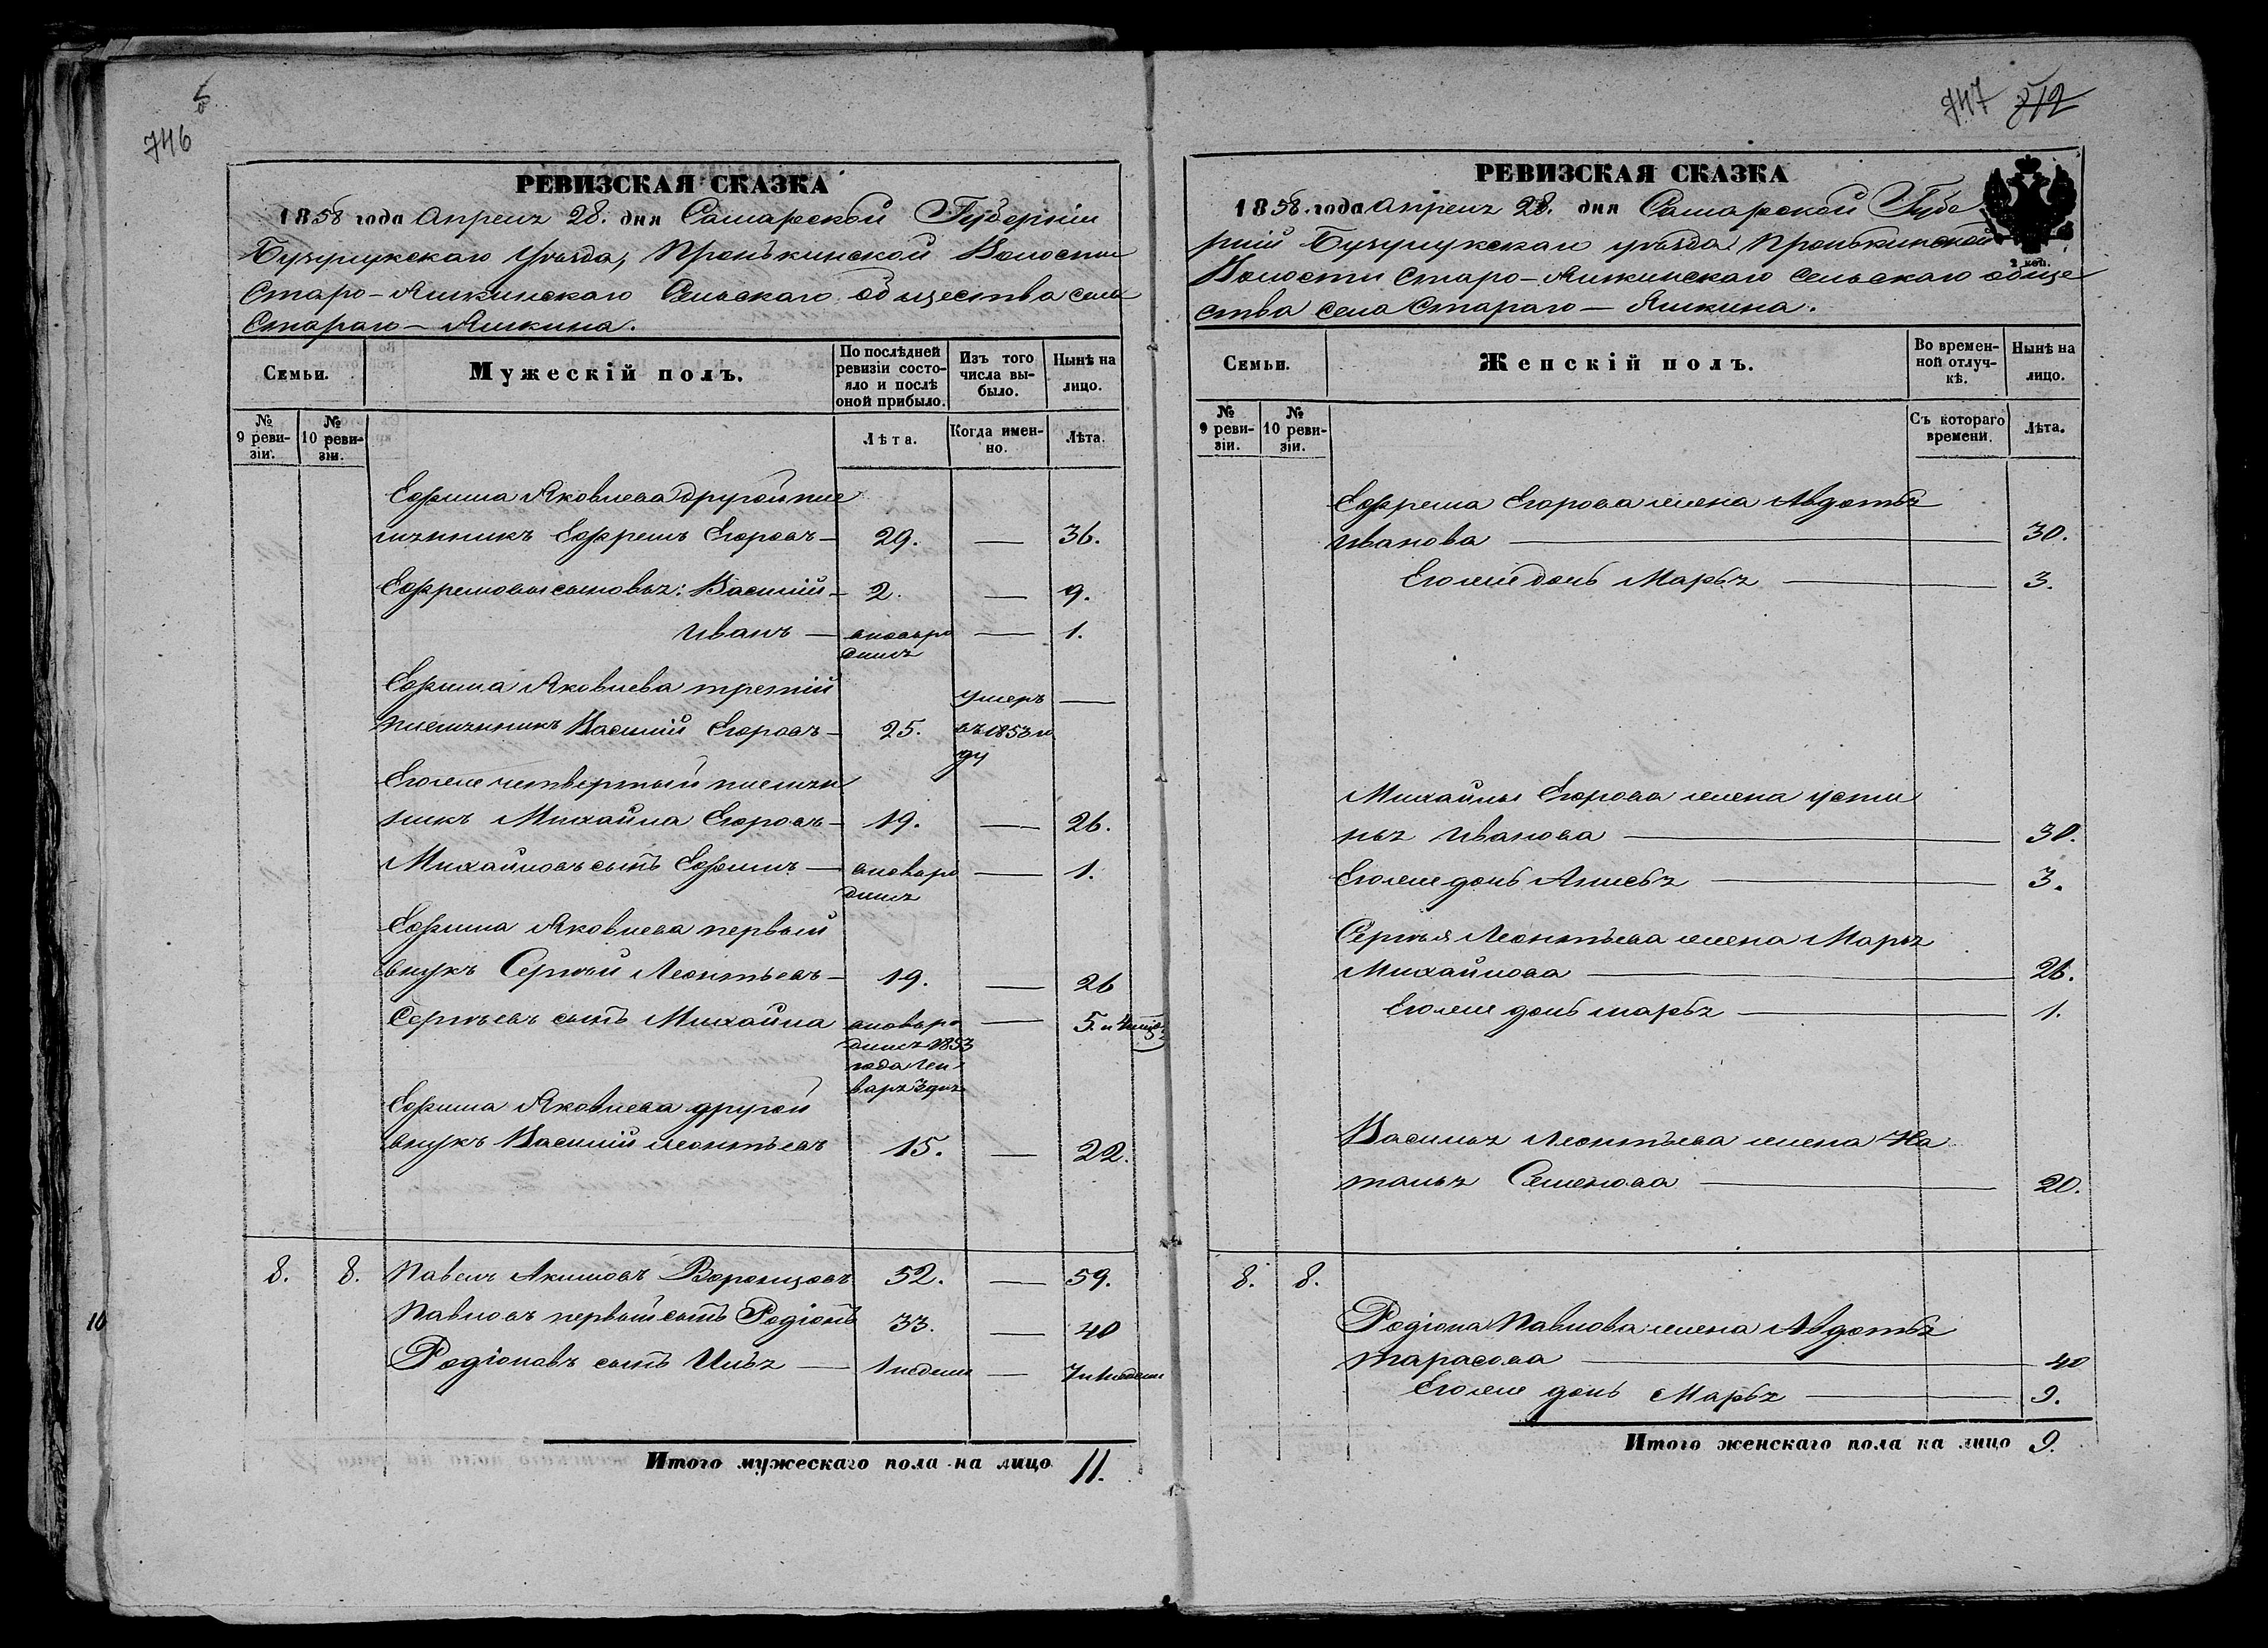 5
746
РЕВИЗСКАЯ СКАЗКА
1858 года Апреля 28. дня Самарской Губерніи
Бузулукскаго Уѣзда, Пронькинской Волости
Старо-Яшкинскаго Сельскаго общества села
Стараго-Яшкина.
Семьи.
Мужескій полъ.
По послѣдней ревизіи состояло и послѣ оной прибыло.
Изъ того числа выбыло.
Нынѣ на лицо.
№ 9 ревизіи.
№ 10 ревизіи.
Лѣта.
Когда именно.
Лѣта.
Ефима Яковлева другой пле
мянникъ Ефремъ Егоровъ — 29. — 36.
Ефремовы сыновья: Василий — 2. — 9.
Иванъ — вновь ро — 1.
дился
Ефима Яковлева третій умеръ —
племянникъ Василий Егоровъ — 25. въ 1853 го
ду
Его же четвертый племян
никъ Михайла Егоровъ — 19. — 26.
Михайловъ сынъ Ефимъ — вновь ро — 1.
дился
Ефима Яковлева первый
внукъ Сергѣй Леонтьевъ — 19. — 26
Сергѣевъ сынъ Михайла вновь ро — 5. и 4 мѣся
дился 1853
года Ген
варя 3 дня
Ефима Яковлева другой
внукъ Василий Леонтьевъ 15. — 22.
8. 8. Павелъ Акимовъ Воронцовъ 52. — 59.
Павловъ первый сынъ Родіонъ 33. — 40
Родіоновъ сынъ Илья — 1 недели — 7 и 1 недели
Итого мужескаго пола на лицо 11.
10
747 812
РЕВИЗСКАЯ СКАЗКА
1858. года Апреля 28. дня Самарской Губе
рніи Бузулукскаго уѣзда Пронькинской
2 коп.
Волости Старо-Яшкинскаго Сельскаго обще
ства села Стараго-Яшкина.
Семьи.
Женскій полъ.
Во временной отлучкѣ.
Нынѣ на лицо.
№ 9 ревизіи.
№ 10 ревизіи.
Съ котораго времени.
Лѣта.
Ефрема Егорова жена Авдотья
Иванова — 30.
Его же дочь Марья — 3.
Михайлы Егорова жена Усти
нья Иванова — 30.
Его же дочь Анисья — 3.
Сергѣя Леонтьева жена Марья
Михайлова — 26.
Его же дочь Марья — 1.
Василья Леонтьева жена На
талья Семенова — 20.
8. 8.
Родіона Павлова жена Авдотья
Тарасова — 40
Его же дочь Марья — 9.
Итого женскаго пола на лицо 9.